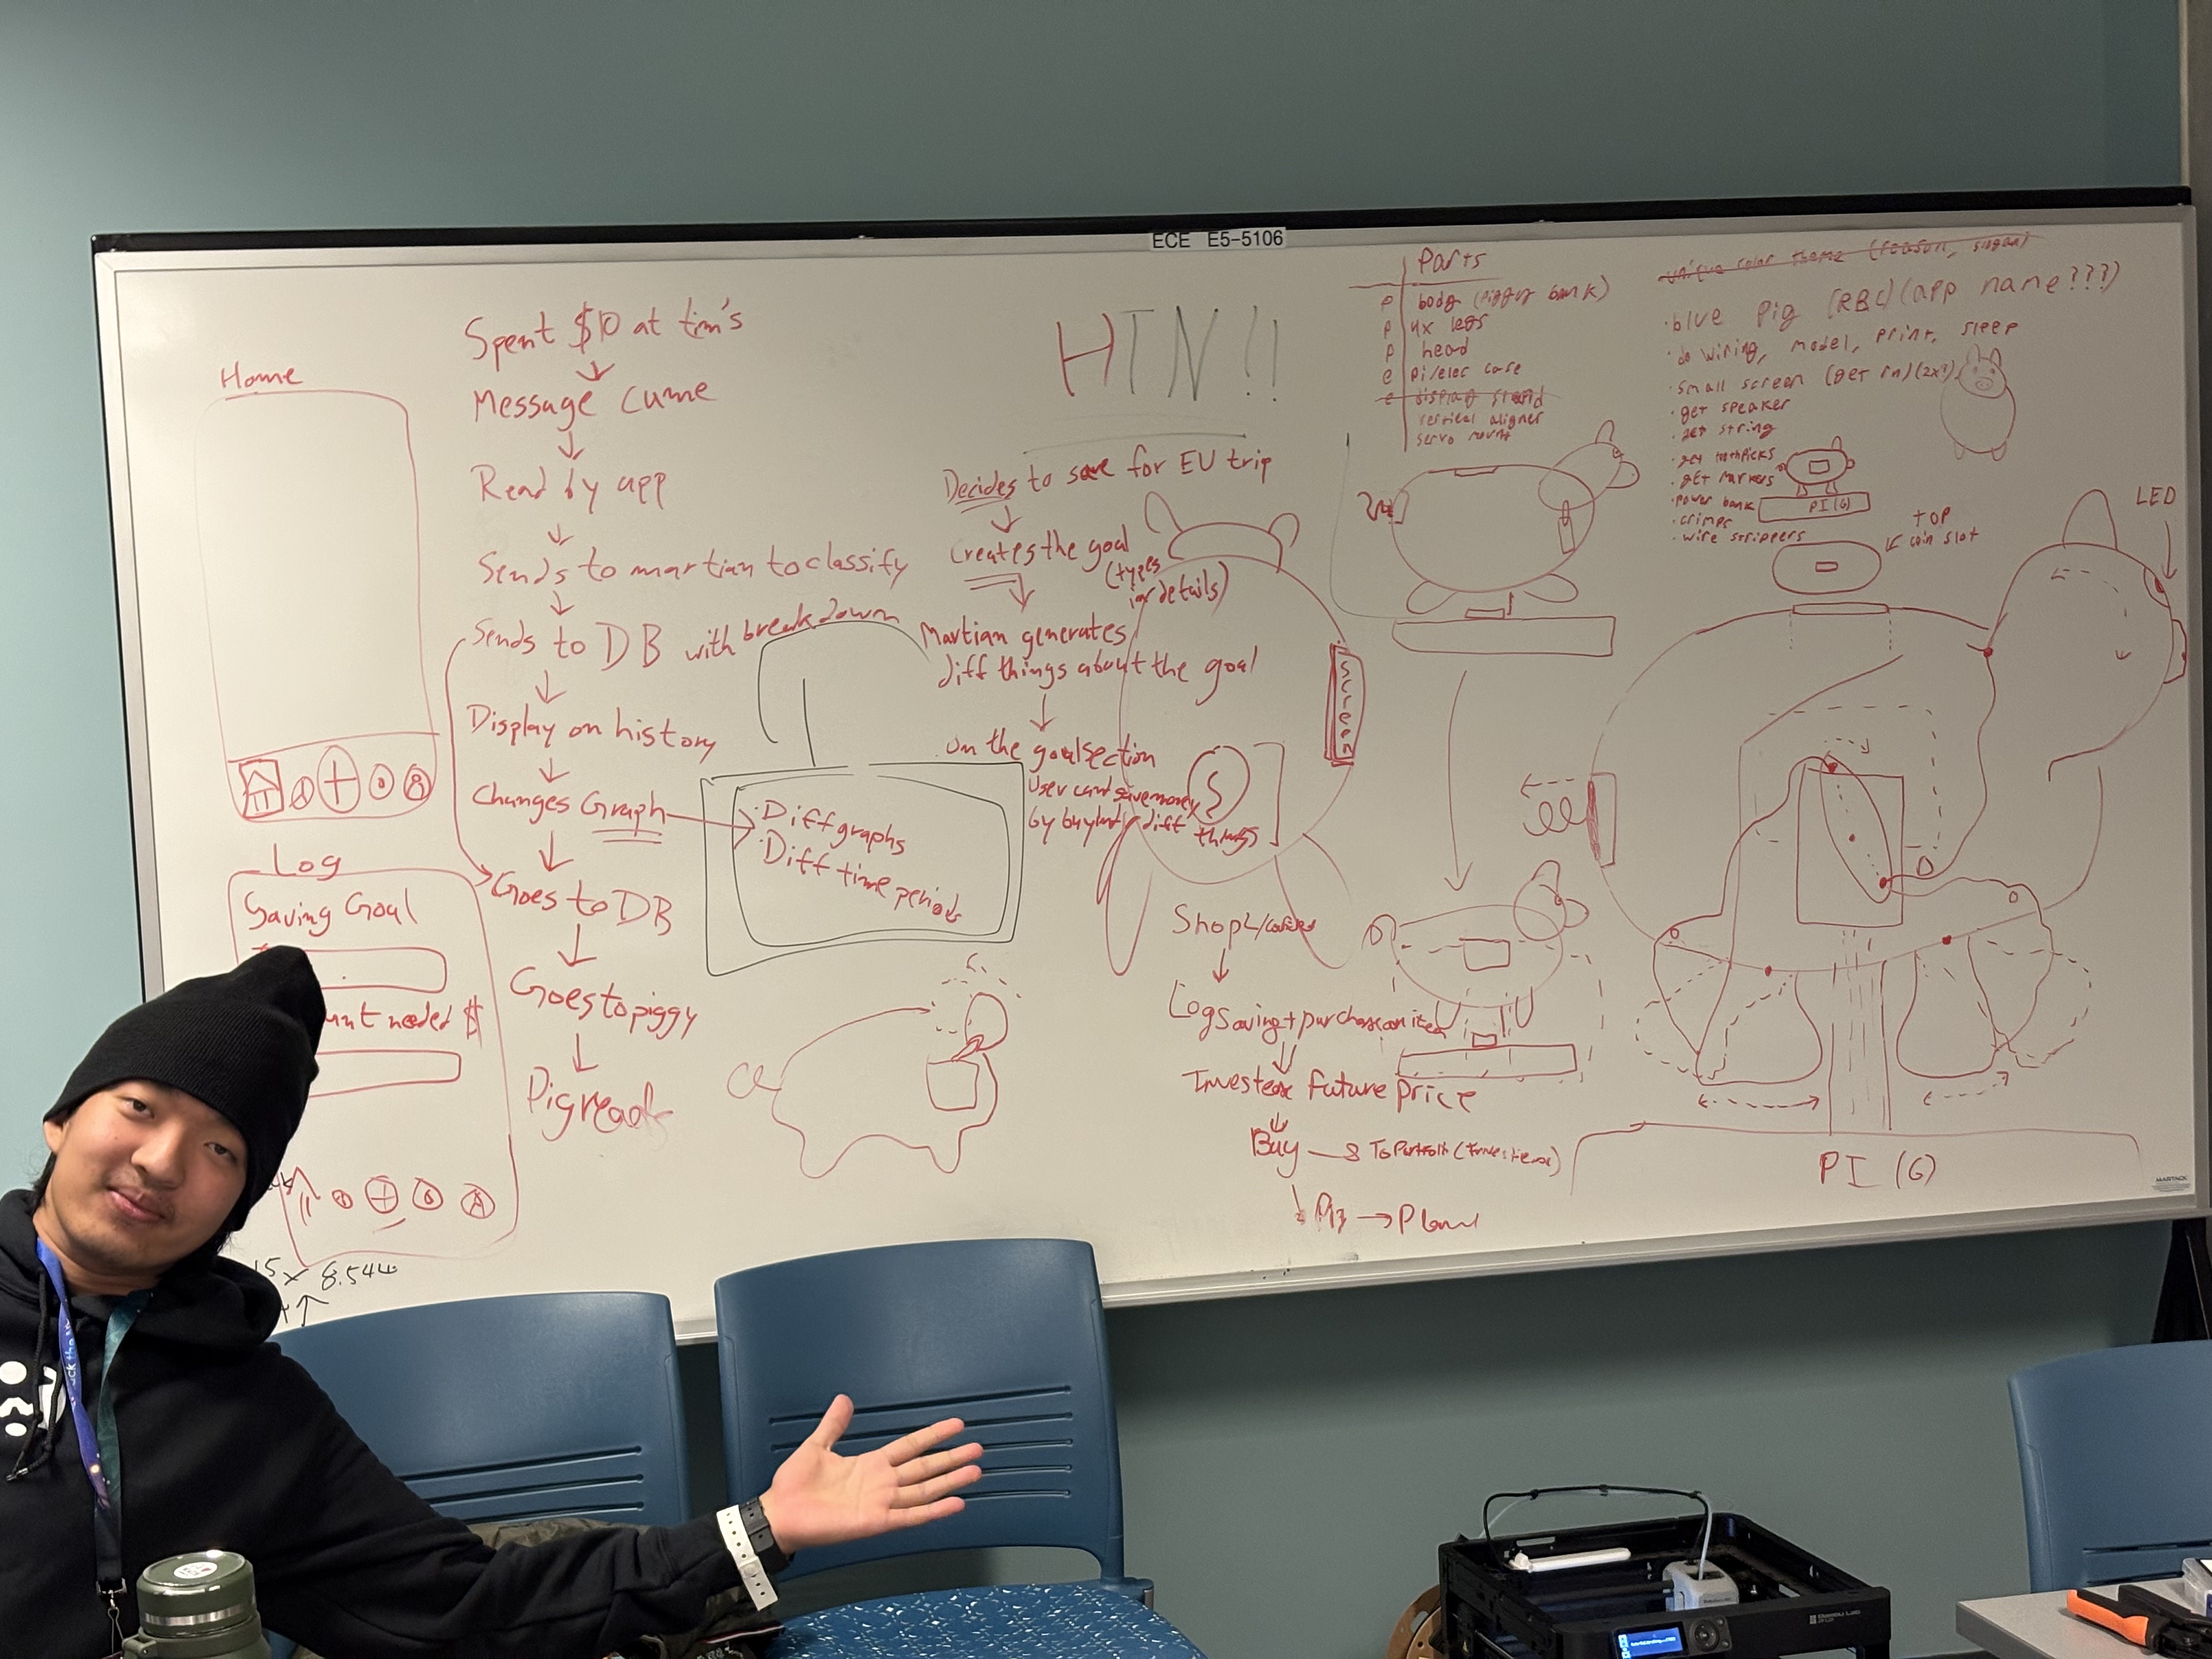 ECE E5-5106
Home
Spent $10 at tim's
Message came
Read by app
Sends to martian to classify
Sends to DB with breakdown
Display on history
Changes Graph
Goes to DB
Goes to piggy
Pig reads
Log
Saving Goal
unt needed $
15 x 8.544
Diff graphs
Diff time periods
HTN!!
Decides to save for EU trip
Creates the goal
(types
in details)
Martian generates
diff things about the goal
on the goal section
User can save money
by buying diff things
screen
Shop
Log saving + purchase on item
Future price
Buy
Pig
Parts
P body (piggy bank)
P 4x legs
P head
e pi/elec case
e display stand
vertical aligner
servo mount
unique color theme (reason, slogan)
·blue pig (RBC) (app name???)
·do wiring, model, print, sleep
·small screen (get rn) (2x?)
·get speaker
·get string
·get toothpicks
·get markers
·power bank
·crimps
·wire strippers
PI (G)
TOP
coin slot
LED
PI (G)
MARTACK
Bambu Lab